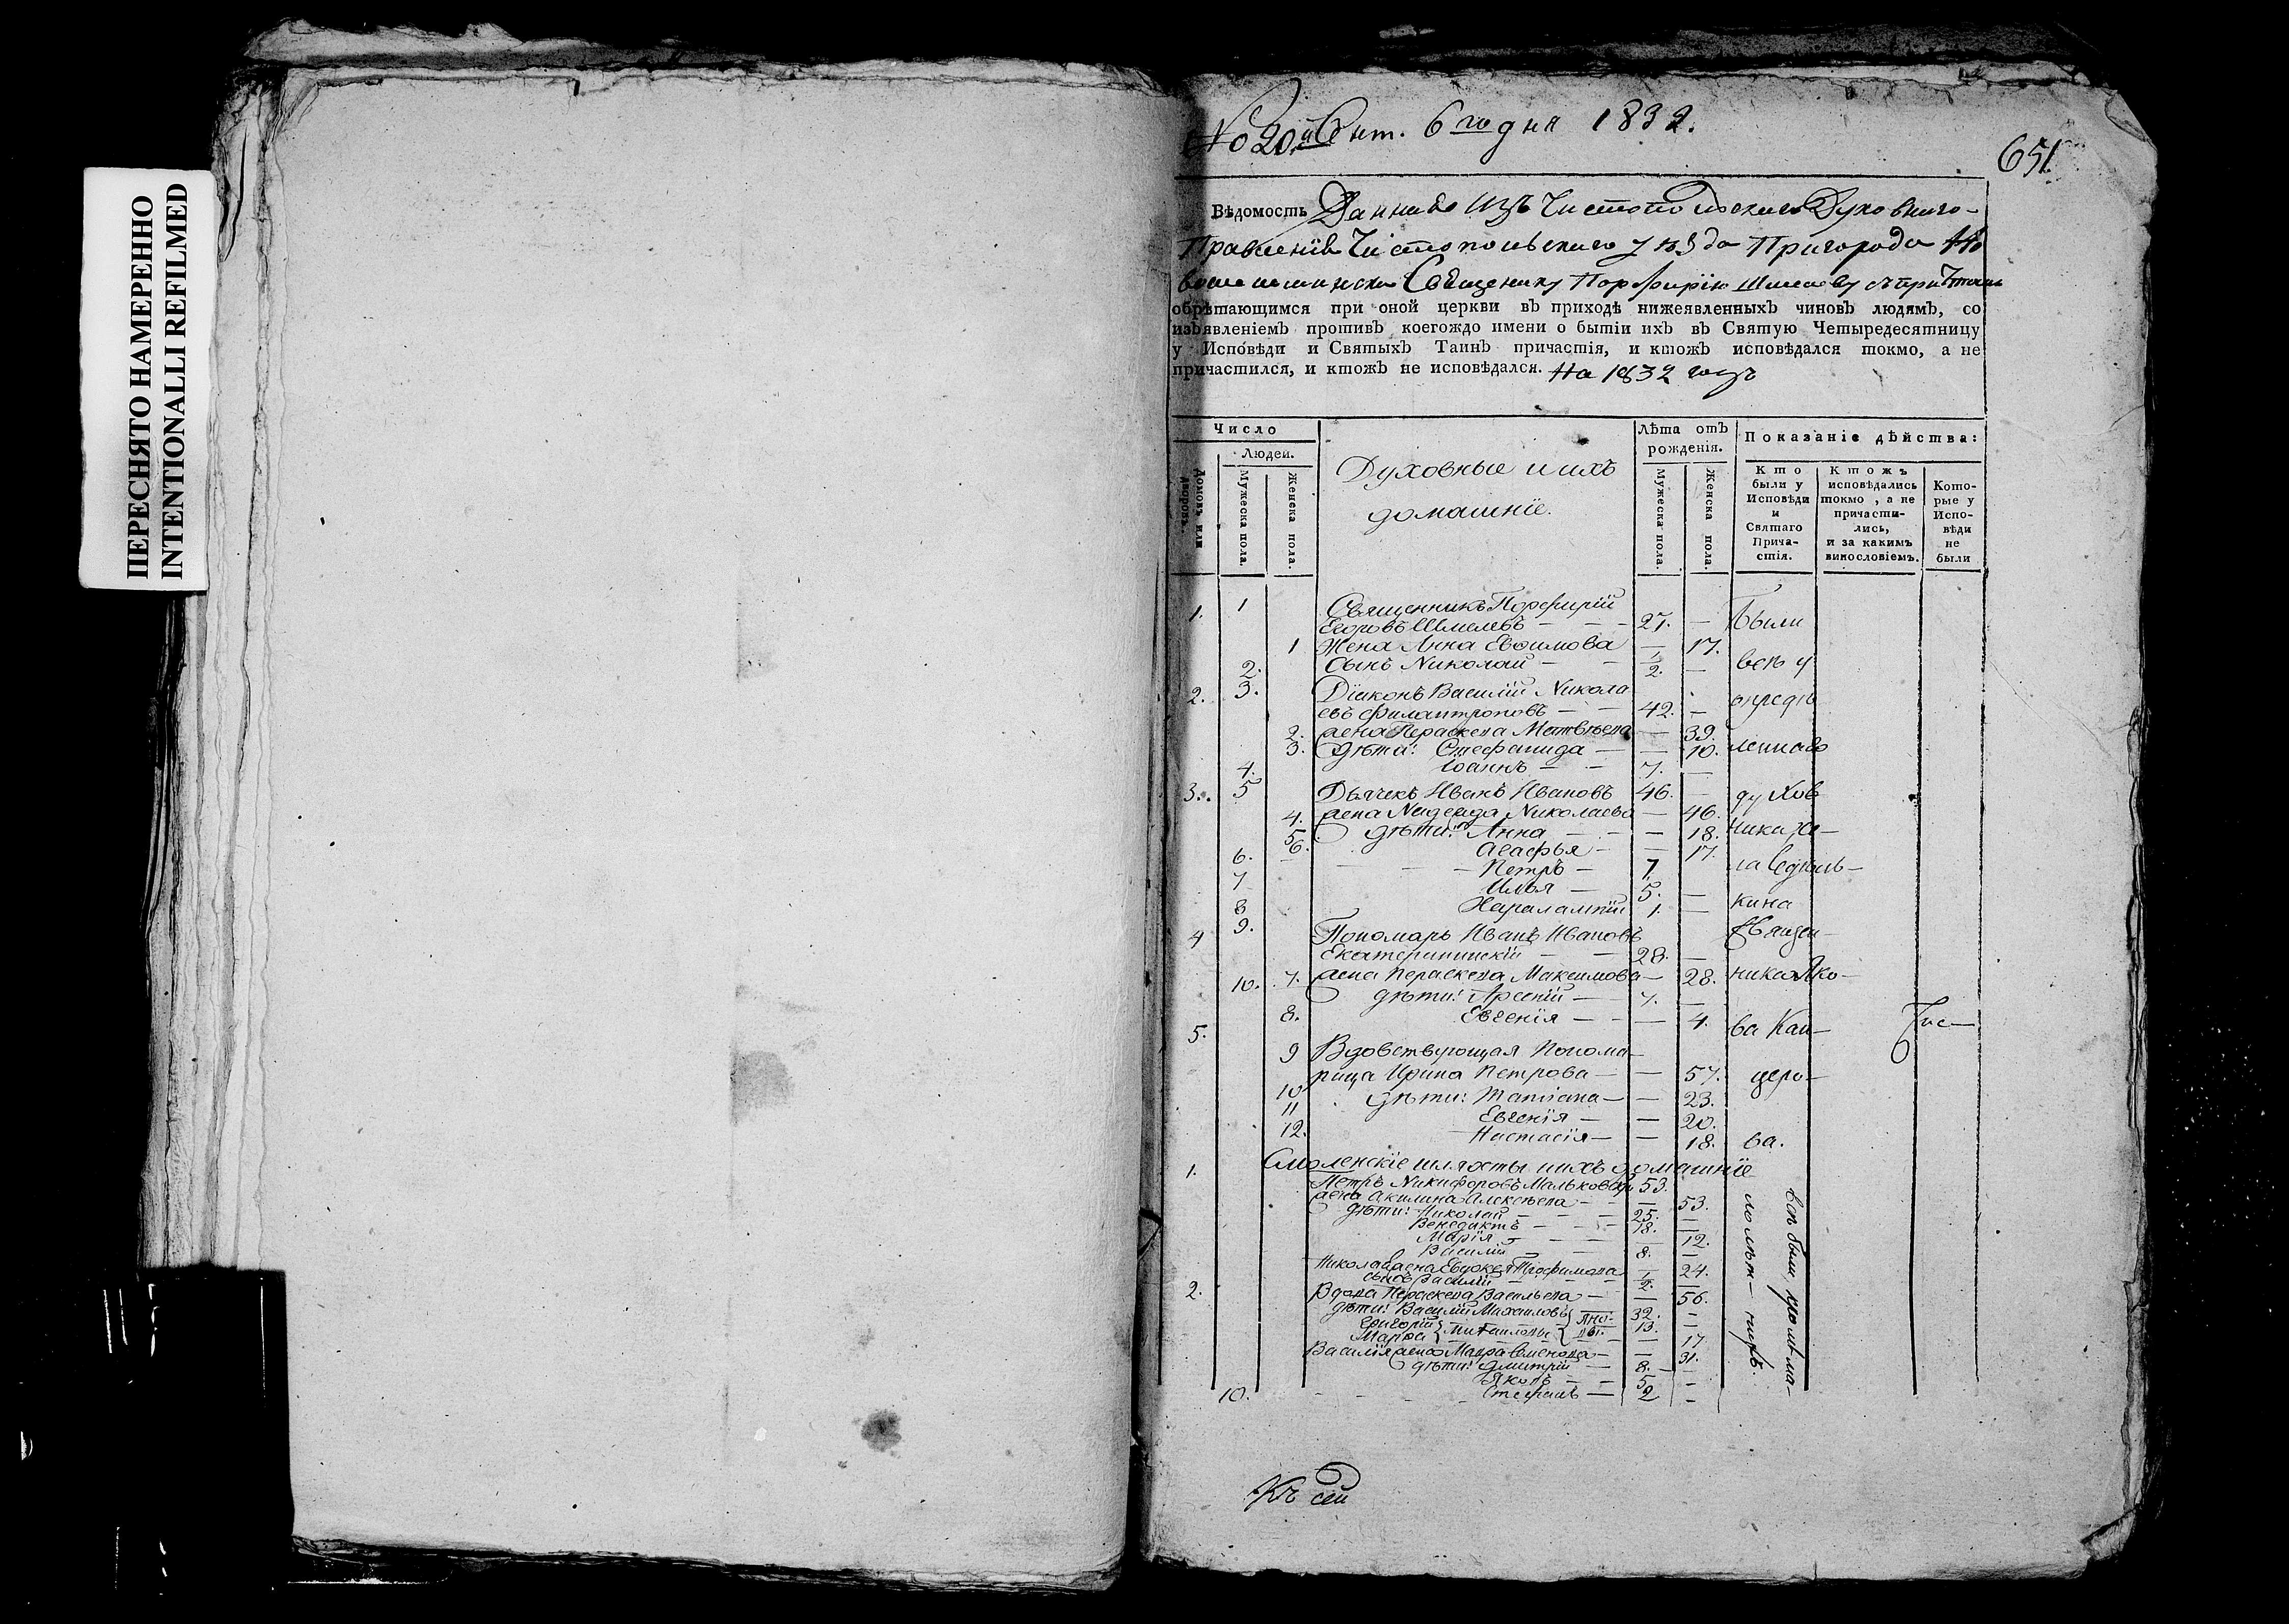 ПЕРЕСНЯТО НАМЕРЕННО
INTENTIONALLI REFILMED
No 20й Сент. 6го дня 1832.
651
Вѣдомость Данная изъ Чистопольскаго Духовнаго
Правленія Чистопольскаго уѣзда Пригорода Но
вошешминска Священнику Порфирію Шмелеву съ причтомъ
обрѣтающимся при оной церкви въ приходѣ нижеявленныхъ чиновъ людямъ, со
изъявленіемъ противъ коегождо имени о бытіи ихъ въ Святую Четыредесятницу
у Исповѣди и Святыхъ Таинъ причастія, и ктожъ исповѣдался токмо, а не
причастился, и ктожъ не исповѣдался. На 1832 годъ
Число
Людей.
Домовъ или дворовъ.
Мужеска пола.
Женска пола.
Духовные и ихъ
домашніе.
Лѣта отъ
рожденія.
Мужеска пола.
Женска пола.
Показаніе дѣйства:
Кто
были у
Исповѣди
и
Святаго
Прича-
стія.
Ктожъ
исповѣдались
токмо, а не
причасти-
лись,
и за какимъ
винословіемъ.
Кото-
рые у
Испо-
вѣди
не
были
1. 1 Священникъ Порфирій
Егоровъ Шмелевъ — 27. — Были
1 Жена Анна Евѳимова — 17.
2. Сынъ Николай — 1/2. — всѣ у
2. 3. Діаконъ Василій Никола
евъ Филантроповъ — 42. — опредѣ
2. жена Пераскева Матвѣева — 39.
3. дѣти: Стефанида — 10. леннаго
4. Іоаннъ — 7. —
3. 5 Дьячекъ Иванъ Ивановъ 46. — духов
4. жена Надежда Николаева — 46.
5 дѣти: Анна — 18. ника се—
6. Агафья — 17.
6. Петръ — 7 ла Едѣль—
7 Илья — 5. —
8 Харалампій 1. — кина
4 9. Пономарь Иванъ Ивановъ Священ—
Екатерининскій — 28. —
7. жена Пераскева Максимова — 28. ника Яко—
10. дѣти: Арсеній — 7. —
8. Евгенія — 4. ва Кан—
5. 9 Вдовствующая Понома—
рица Ирина Петрова — 57. церо—
10 дѣти: Татіана — 23.
11 Евгенія — 20.
12. Настасія — 18. ва.
Смоленскіе шляхты и ихъ домашніе
1. Петръ Никифоровъ Мальковскій 53.
жена Акилина Алексѣева — 53.
дѣти: Николай — 25. —
Венедиктъ — 18. —
Марія — 12.
Василій — 8. —
Николая жена Евдокея Трофимова 24.
сынъ Василій — 1/2. —
2. Вдова Пераскева Васильева — 56.
дѣти: Василій Михаиловъ 32. —
Григорій 13. —
Марѳа Михаиловы 17
Василія жена Мавра Семенова — 31.
дѣти: Дмитрій — 8. —
Яковъ — 5 —
10. Стефанъ — 2 —
всѣ были, кромѣ ма-
лолѣт-нихъ.
Къ сей